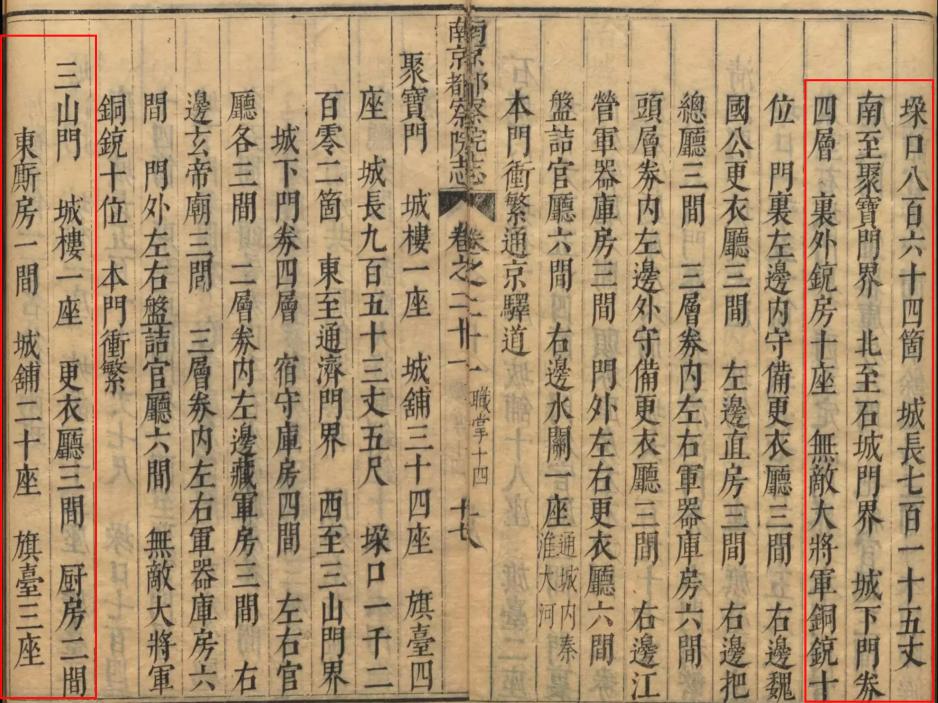 垜口八百六十四箇　城長七百一十五丈
南至聚寶門界　北至石城門界　城下門券
四層　裏外銃房十座　無敵大將軍銅銃十
位　門裏左邊內守備更衣廳三間　右邊魏
國公更衣廳三間　左邊直房三間　右邊把
總廳三間　三層券內左右軍器庫房六間
頭層券內左邊外守備更衣廳三間　右邊江
營軍器庫房三間　門外左右更衣廳六間
盤詰官廳六間　右邊水關一座　通城內秦淮大河
本門衝繁通京驛道
南京都察院志　卷之二十一　職掌十四　十七
聚寶門　城樓一座　城鋪三十四座　旗臺四
座　城長九百五十三丈五尺　垜口一千二
百零二箇　東至通濟門界　西至三山門界
城下門券四層　宿守庫房四間　左右官
廳各三間　二層券內左邊藏軍房三間　右
邊玄帝廟三間　三層券內左右軍器庫房六
間　門外左右盤詰官廳六間　無敵大將軍
銅銃十位　本門衝繁
三山門　城樓一座　更衣廳三間　厨房二間
東厮房一間　城鋪二十座　旗臺三座